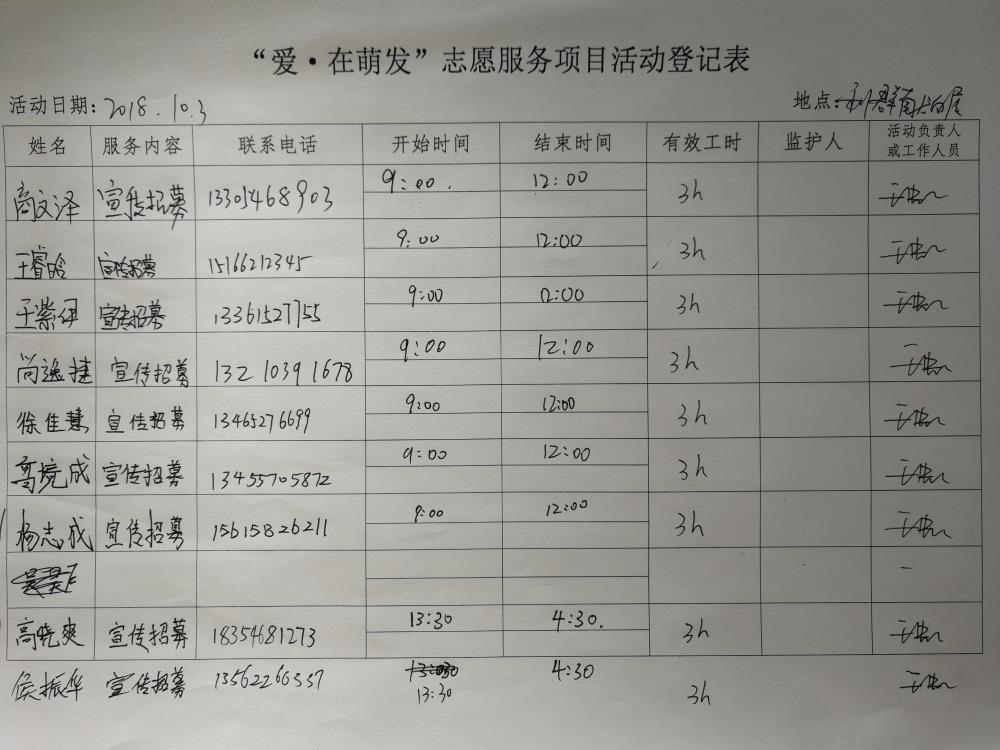 “爱·在萌发”志愿服务项目活动登记表
活动日期：2018.10.3 地点：
姓名 服务内容 联系电话 开始时间 结束时间 有效工时 监护人 活动负责人或工作人员
高文泽 宣传招募 13305468903 9:00. 12:00 3h
王睿晗 宣传招募 15166212345 9:00 12:00 3h
王紫伊 宣传招募 13361527755 9:00 12:00 3h
尚逸捷 宣传招募 13210391678 9:00 12:00 3h
徐佳慧 宣传招募 13465276699 9:00 12:00 3h
高境成 宣传招募 13455705872 9:00 12:00 3h
杨志成 宣传招募 15615826211 9:00 12:00 3h
高晓爽 宣传招募 18354681273 13:30 4:30. 3h
侯振华 宣传招募 13562266337 13:30 4:30 3h